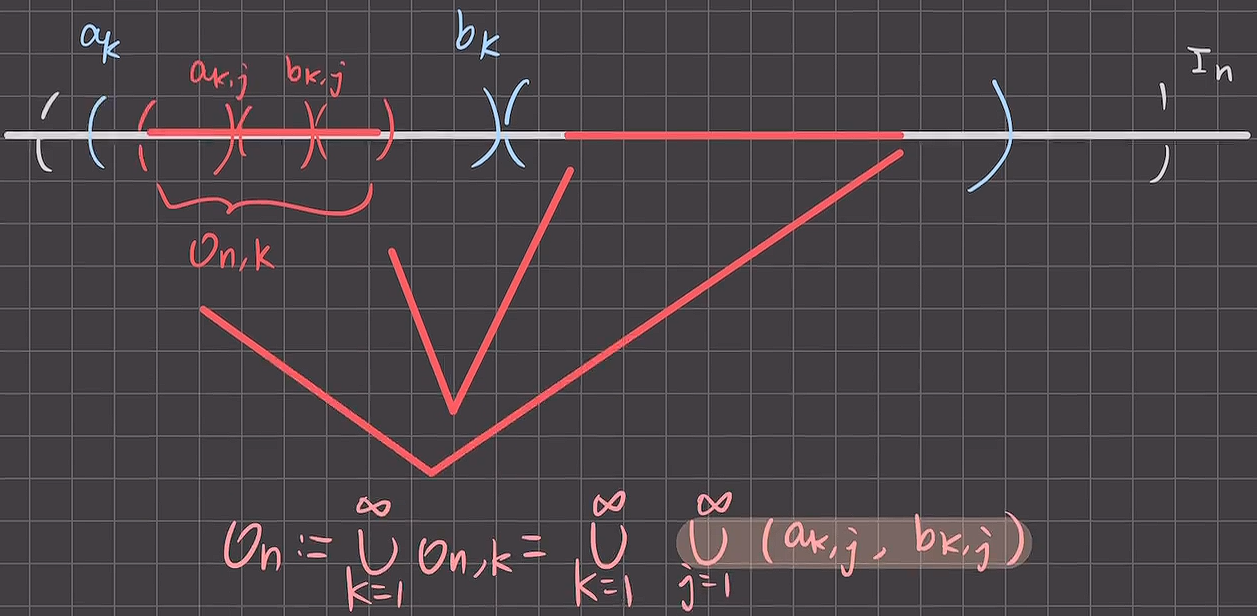 a_k
b_k
I_n
a_{k,j} b_{k,j}
O_{n,k}
O_n := ∞⋃k=1 O_{n,k} = ∞⋃k=1 ∞⋃j=1 (a_{k,j}, b_{k,j})